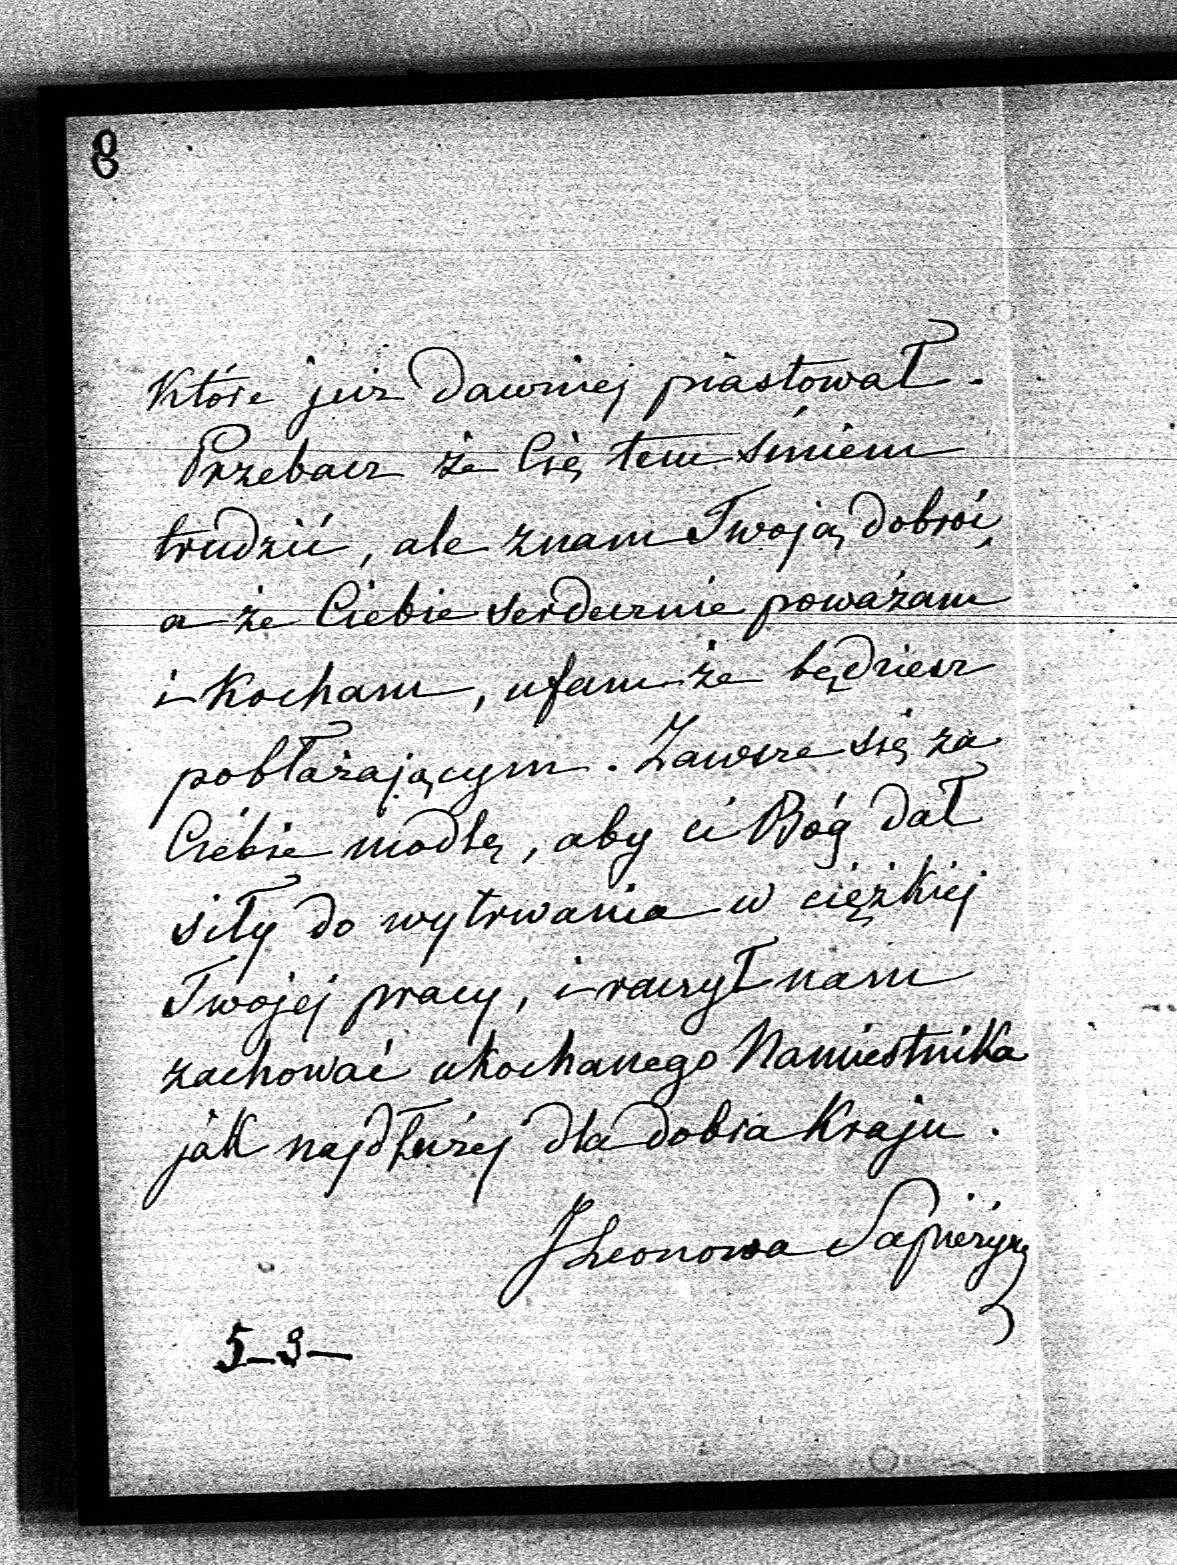 8
które już dawniej piastował.
Przebacz że Cię tem śmiem
trudzić, ale znam Twoją dobroć,
a że Ciebie serdecznie poważam
i kocham, ufam że będziesz
pobłażającym. Zawsze się za
Ciebie modlę, aby ci Bóg dał
siły do wytrwania w ciężkiej
Twojej pracy, i raczył nam
zachować ukochanego Namiestnika
jak najdłużej dla dobra Kraju.
JLeonowa Sapieżyn
5–3–